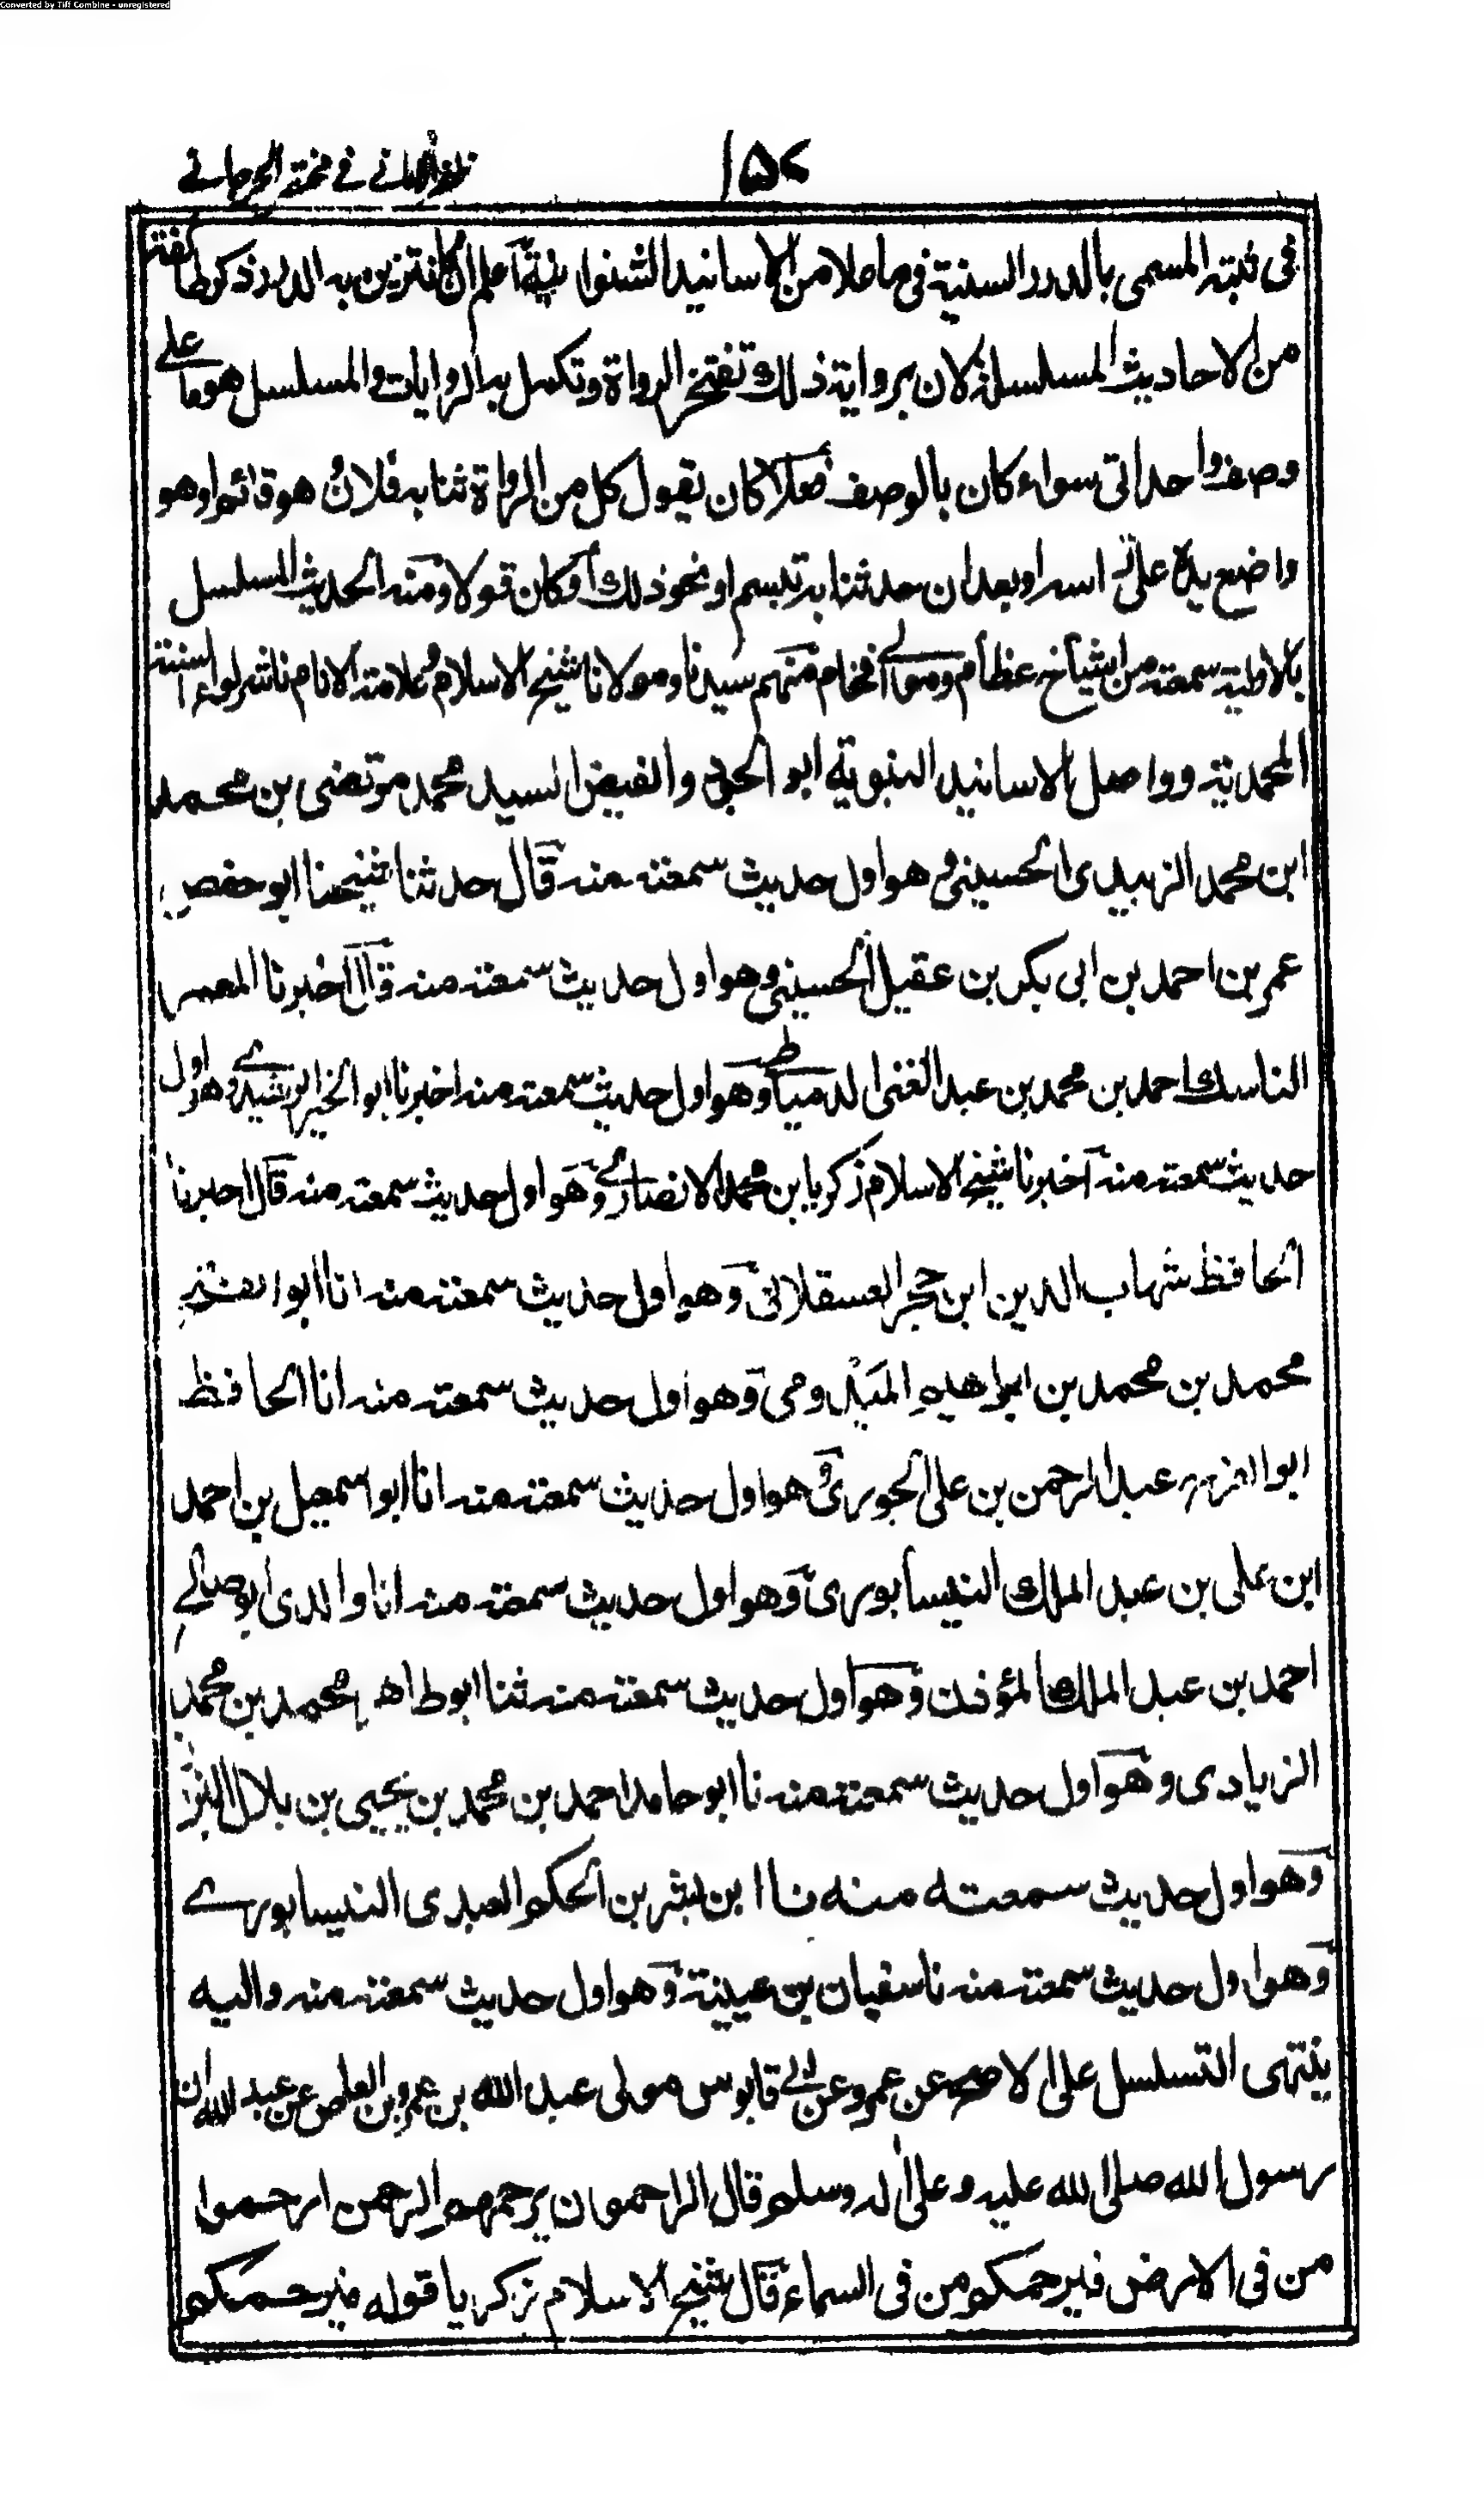 Converted by Tiff Combine - unregistered
ظفر الاماني في مختصر الجرجاني
١٥٢
فى ثبته المسمى بالدرر السنية فى ما علا من الاسانيد الشنوانية آعلم ان مما تتزين به الدرر ذكر طائفة
من الاحاديث المسلسلة لان برواية ذلك تفتخر الرواة وتكمل به الروايات والمسلسل هو ما على
وصف واحد اتى سواء كان بالوصف فعلا كان يقول كل من الرواة ثنا به فلان هو قائم او هو
واضع يده على راسه او بعد ان حدثنا به تبسم او نحو ذلك آو كان قولا ومنه الحديث المسلسل
بالاولية سمعته من اشياخ عظام وموالي افخام منهم سيدنا ومولانا شيخ الاسلام علامة الانام ناشر لواء السنة
المحمدية وواصل الاسانيد النبوية ابو الجود والفيض السيد محمد مرتضى بن محمد
ابن محمد الزبيدى الحسينى وهو اول حديث سمعته منه قال حدثنا شيخنا ابو حفص
عمر بن احمد بن ابى بكر بن عقيل الحسينى وهو اول حديث سمعته منه قال اخبرنا المعمر
الناسك احمد بن محمد بن عبد الغنى الدمياطى وهو اول حديث سمعته منه اخبرنا ابو الخير الرشيدے وهو اول
حديث سمعته منه آخبرنا شيخ الاسلام زكريا بن محمد الانصارے وهو اول حديث سمعته منه قال اخبرنا
الحافظ شهاب الدين ابن حجر العسقلانى وهو اول حديث سمعته منه انا ابو الفتح
محمد بن محمد بن ابراهيم الميدومى وهو اول حديث سمعته منه انا الحافظ
ابو الفرج عبد الرحمن بن على الجورى وهو اول حديث سمعته منه انا ابو اسمعيل بن احمد
ابن على بن عبد الملك النيسابورى وهو اول حديث سمعته منه انا والدى ابو صالح
احمد بن عبد الملك المؤذن وهو اول حديث سمعته منه ثنا ابو طاهر محمد بن محمد
الزيادى وهو اول حديث سمعته منه نا ابو حامد احمد بن محمد بن يحيى بن بلال البزز
وهو اول حديث سمعته منه نا ابن بشر بن الحكم العبدى النيسابورے
وهو اول حديث سمعته منه نا سفيان بن عيينة وهو اول حديث سمعته منه واليه
ينتهى التسلسل على الاصح عن عمرو عن ابى قابوس مولى عبد الله بن عمرو بن العاص عن عبد الله ان
رسول الله صلى الله عليه وعلى اله وسلم قال الراحمون يرحمهم الرحمن ارحموا
من فى الارض فيرحمكم من فى السماء قال شيخ الاسلام زكريا قوله فيرحمكم